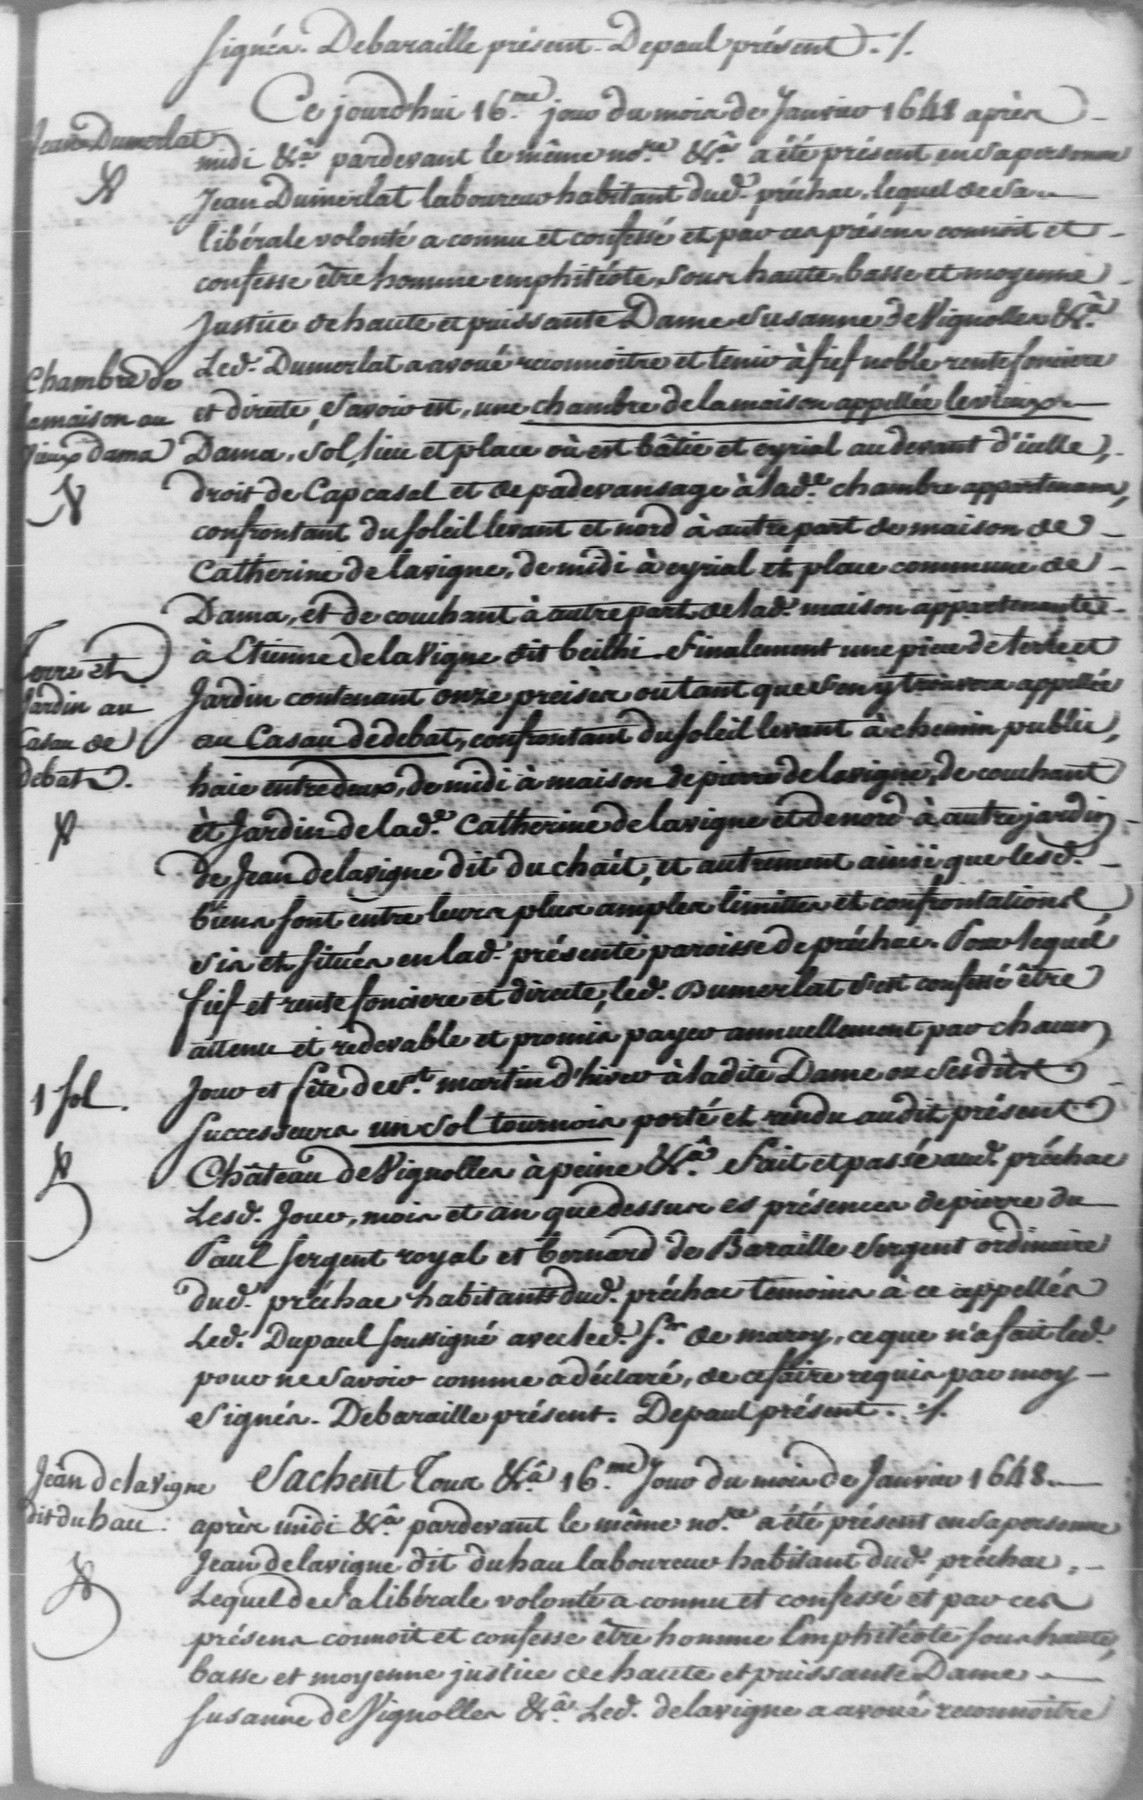 signés. Debaraille présent. Depaul présent ./.
Ce jourdhui 16.me jour du mois de Janvier 1648 après
Jean Dumerlat
midi &.a pardevant le même no.re &.a a été présent en sa personne
Jean Dumerlat laboureur habitant dud. préchac, lequel de sa
libérale volonté a connu et confessé et par ces présens connoit et
confesse être homme emphitéote, sous haute, basse et moyenne
Justice de haute et puissante Dame Susanne de Vignolles &.a
Led. Dumerlat a avoué reconnoitre et tenir à fief noble rente fonciere
Chambre de
lamaison au
Vieux dama
et directe, Savoir est, une chambre de la maison appellée le vieux
Dama, sol, lieu et place où est bâtie et eyrial au devant d'icelle,
droit de Capcasal et de padevansage à lad.e chambre appartenans,
confrontant du soleil levant et nord à autre part de maison de
Catherine de lavigne, de midi à eyrial et place commune de
Dama, et de couchant à autre part de lad. maison appartenante
à Etienne de la Vigne dit beilhi. finalement une piece de terre et
Terre et
Jardin au
Casau de
debat.
Jardin contenant onze preises ou tant que s'en y trouvera appellée
au Casau de debat, confrontant du soleil levant à chemin public,
haie entre deux, de midi à maison de pierre de lavigne, de couchant
et Jardin de lad.e Catherine de lavigne et de nord à autre jardin
de Jean de lavigne dit du chait, et autrement ainsi que lesd.
biens sont entre leurs plus amples limittes et confrontations
sis et situés en lad. présente paroisse de préchac. Pour lequel
fief et rente fonciere et directe, led. Dumerlat s'est confessé être
attenu et redevable et promis payer annuellement par chacun
1 sol.
Jour et fête de S.t martin d'hiver à la dite Dame ou ses dits
successeurs un sol tournois porté et rendu au dit présent
Château de Vignolles à peine &.a fait et passé aud. préchac
Lesd. Jour, mois et an que dessus es présences de pierre du
Paul sergent royal et bernard de Baraille sergent ordinaire
dud. préchac habitants dud. préchac temoins à ce appellés
Led. Dupaul soussigné avec led. s.r de marey, ce que n'a fait led.
pour ne savoir comme a déclaré, de ce faire requis par moy
signés. Debaraille présent. Depaul présent. ./.
Jean de lavigne
dit du hau.
Sachent Tous &.a 16.me Jour du mois de Janvier 1648.
après midi &.a pardevant le même no.re a été présent en sa personne
Jean de lavigne dit du hau laboureur habitant dud. préchac,
Lequel de sa libérale volonté a connu et confessé et par ces
présens connoit et confesse être homme Emphitéote sous haute,
basse et moyenne justice de haute et puissante Dame
Susanne de Vignolles &.a Led. de lavigne a avoué reconnoitre